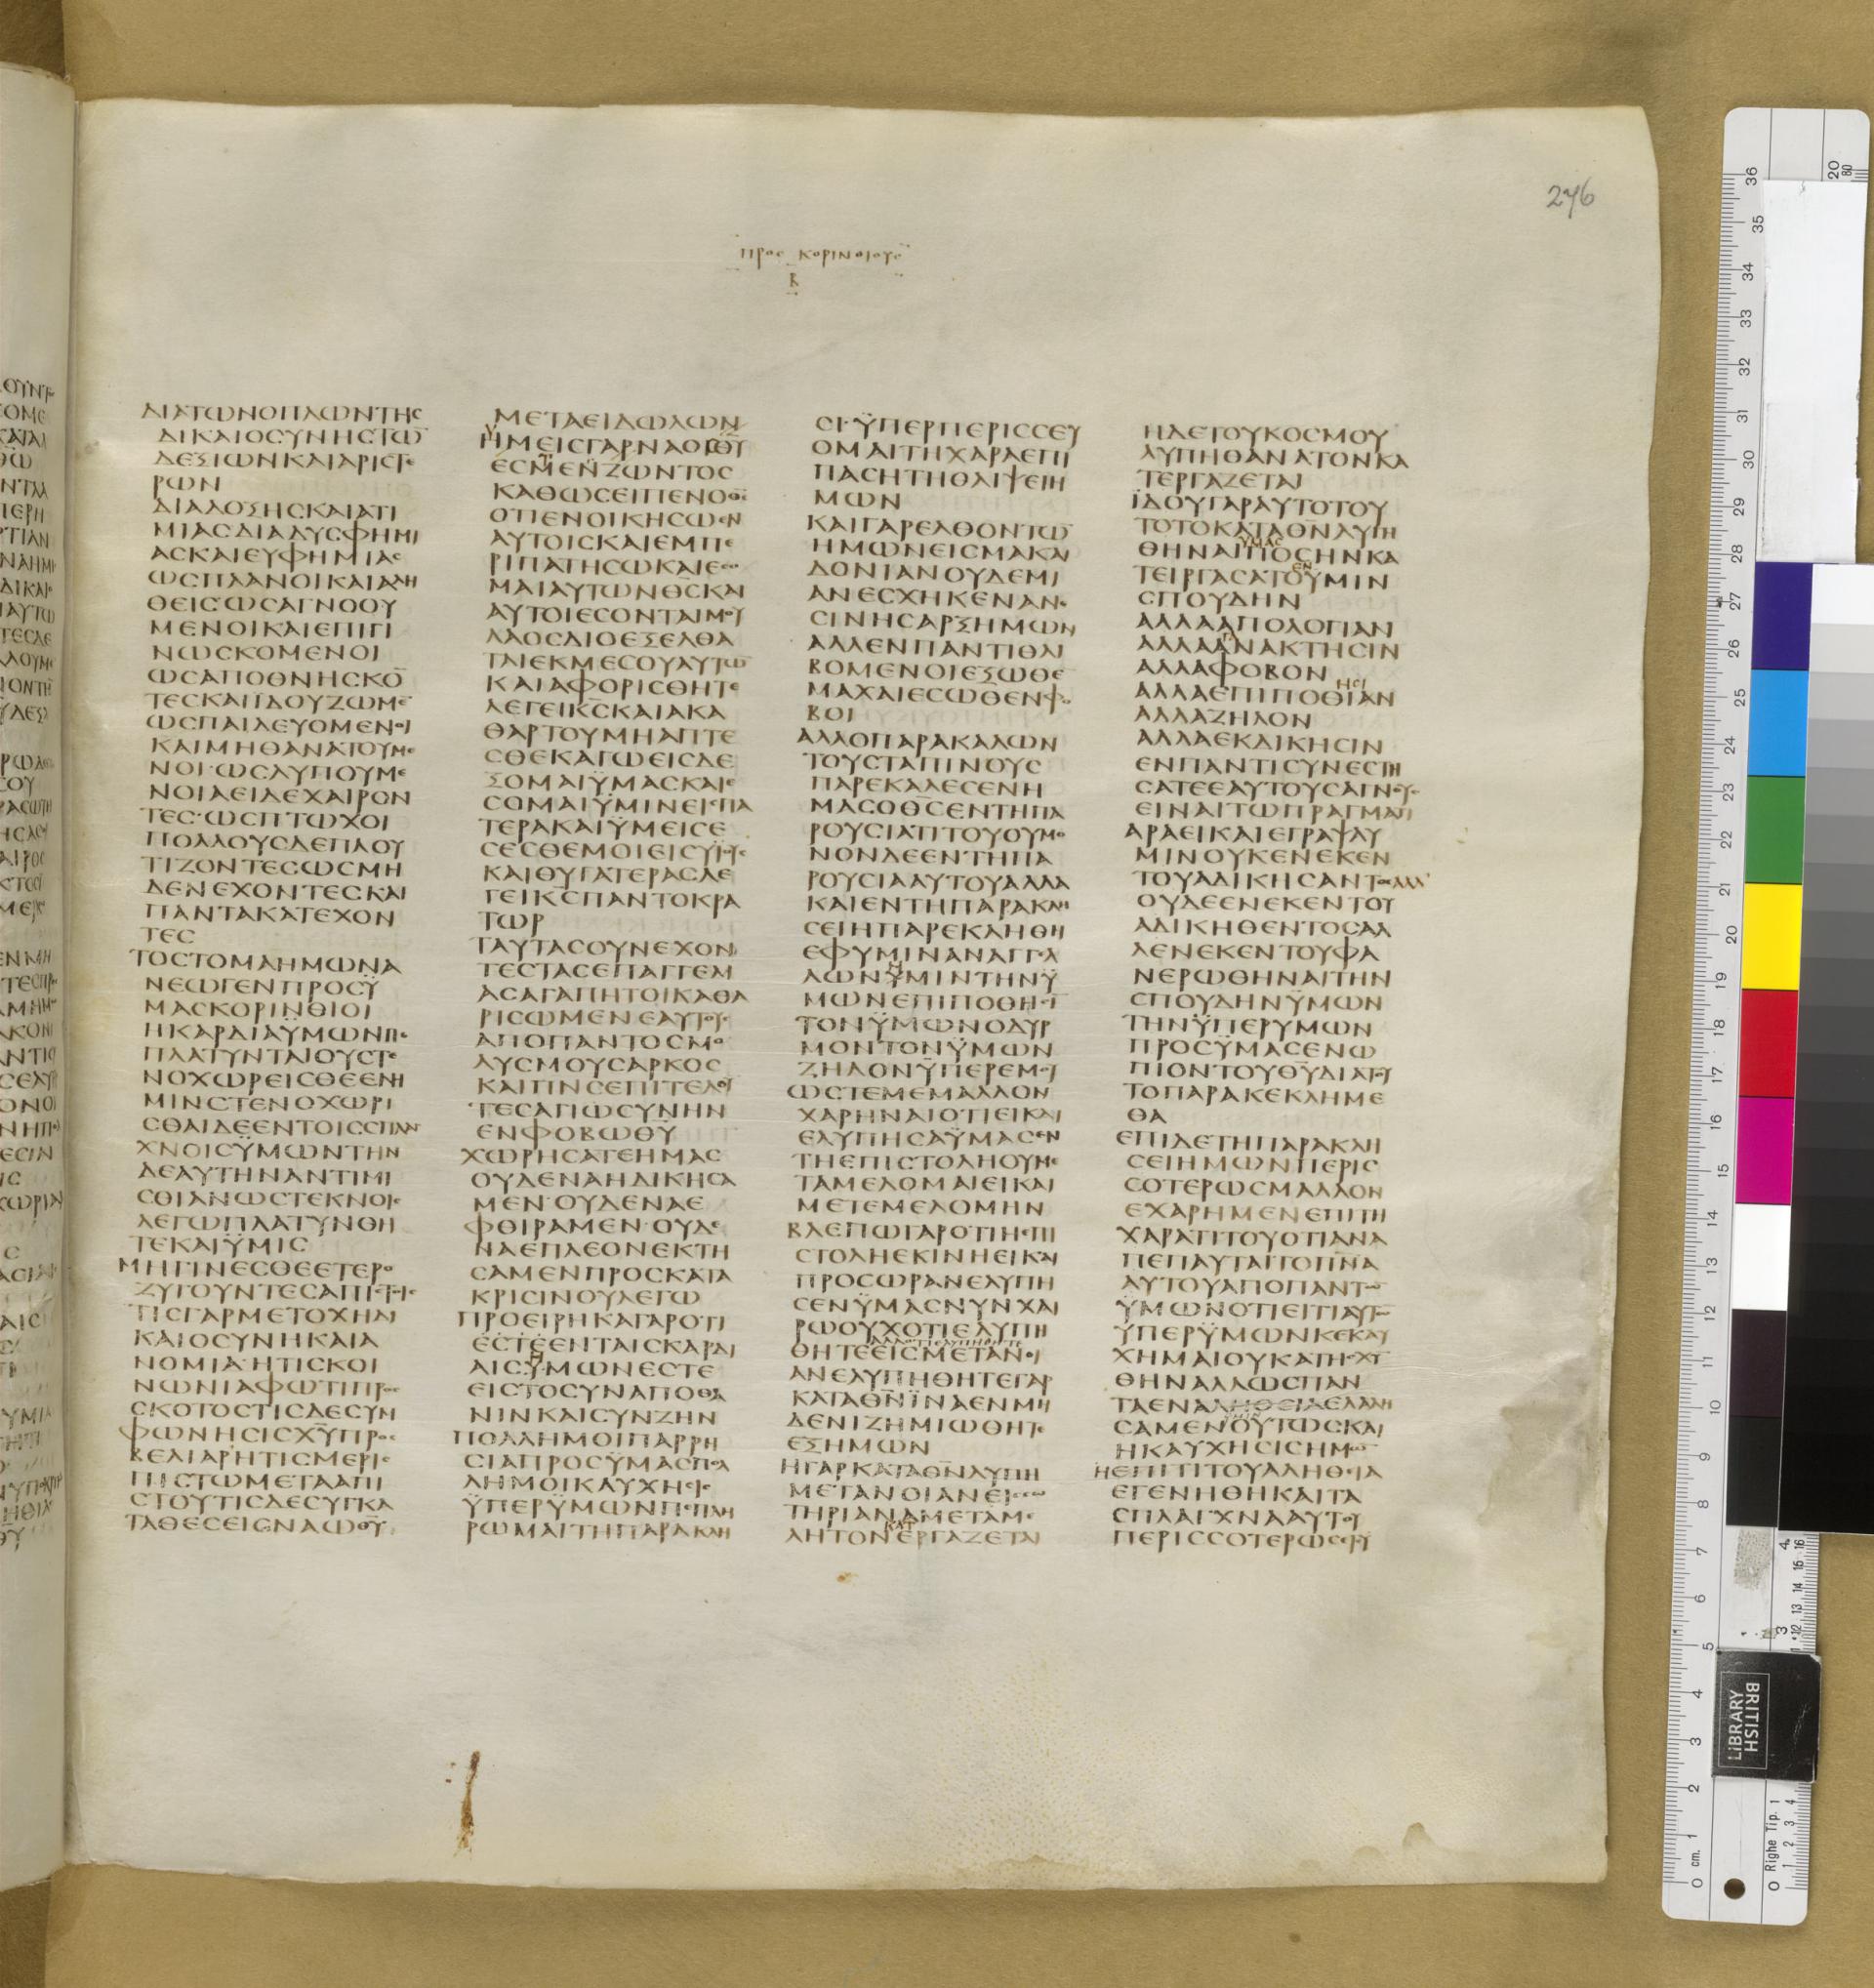 276
ΠΡΟΣ ΚΟΡΙΝΘΙΟΥΣ
Β
ΔΙΑΤΩΝΟΠΛΩΝΤΗϹ
ΔΙΚΑΙΟϹΥΝΗϹΤΩ̅
ΔΕΞΙΩΝΚΑΙΑΡΙϹΤΕ
ΡΩΝ
ΔΙΑΔΟΞΗϹΚΑΙΑΤΙ
ΜΙΑϹΔΙΑΔΥϹΦΗΜΙ
ΑϹΚΑΙΕΥΦΗΜΙΑϹ
ΩϹΠΛΑΝΟΙΚΑΙΑΛΗ
ΘΕΙϹΩϹΑΓΝΟΟΥ
ΜΕΝΟΙΚΑΙΕΠΙΓΙ
ΝΩϹΚΟΜΕΝΟΙ
ΩϹΑΠΟΘΝΗϹΚΟ̅
ΤΕϹΚΑΙΪΔΟΥΖΩΜΕ̅
ΩϹΠΑΙΔΕΥΟΜΕΝΟΙ
ΚΑΙΜΗΘΑΝΑΤΟΥΜΕ
ΝΟΙ·ΩϹΛΥΠΟΥΜΕ
ΝΟΙΑΕΙΔΕΧΑΙΡΟΝ
ΤΕϹ·ΩϹΠΤΩΧΟΙ
ΠΟΛΛΟΥϹΔΕΠΛΟΥ
ΤΙΖΟΝΤΕϹΩϹΜΗ
ΔΕΝΕΧΟΝΤΕϹΚΑΙ
ΠΑΝΤΑΚΑΤΕΧΟΝ
ΤΕϹ
ΤΟϹΤΟΜΑΗΜΩΝΑ
ΝΕΩΓΕΝΠΡΟϹΫ
ΜΑϹΚΟΡΙΝΘΙΟΙ
ΗΚΑΡΔΙΑΫΜΩΝΠΕ
ΠΛΑΤΥΝΤΑΙΟΥϹΤΕ
ΝΟΧΩΡΕΙϹΘΕΕΝΗ
ΜΙΝϹΤΕΝΟΧΩΡΙ
ϹΘΑΙΔΕΕΝΤΟΙϹϹΠΛΑΓ
ΧΝΟΙϹΫΜΩΝΤΗΝ
ΔΕΑΥΤΗΝΑΝΤΙΜΙ
ϹΘΙΑΝΩϹΤΕΚΝΟΙϹ
ΛΕΓΩΠΛΑΤΥΝΘΗ
ΤΕΚΑΙΫΜΙϹ
ΜΗΓΙΝΕϹΘΕΕΤΕΡΟ
ΖΥΓΟΥΝΤΕϹΑΠΙϹΤΟΙϹ
ΤΙϹΓΑΡΜΕΤΟΧΗΔΙ
ΚΑΙΟϹΥΝΗΚΑΙΑ
ΝΟΜΙΑ·ΗΤΙϹΚΟΙ
ΝΩΝΙΑΦΩΤΙΠΡΟϹ
ϹΚΟΤΟϹΤΙϹΔΕϹΥΜ
ΦΩΝΗϹΙϹΧΥ̅ΠΡΟϹ
ΒΕΛΙΑΡΗΤΙϹΜΕΡΙϹ
ΠΙϹΤΩΜΕΤΑΑΠΙ
ϹΤΟΥΤΙϹΔΕϹΥΓΚΑ
ΤΑΘΕϹΕΙϹΝΑΩΘΥ̅
ΜΕΤΑΕΙΔΩΛΩΝ
ΗΜΕΙϹΓΑΡΝΑΟΙΘΥ̅
ΕϹΜΕΝΖΩΝΤΟϹ
ΚΑΘΩϹΕΙΠΕΝΟΘϹ̅
ΟΤΙΕΝΟΙΚΗϹΩΕΝ
ΑΥΤΟΙϹΚΑΙΕΜΠΕ
ΡΙΠΑΤΗϹΩΚΑΙΕϹΟ
ΜΑΙΑΥΤΩΝΘϹ̅ΚΑΙ
ΑΥΤΟΙΕϹΟΝΤΑΙΜΟΥ
ΛΑΟϹΔΙΟΕΞΕΛΘΑ
ΤΑΙΕΚΜΕϹΟΥΑΥΤΩ̅
ΚΑΙΑΦΟΡΙϹΘΗΤΕ
ΛΕΓΕΙΚϹ̅ΚΑΙΑΚΑ
ΘΑΡΤΟΥΜΗΑΠΤΕ
ϹΘΕΚΑΓΩΕΙϹΔΕ
ΞΟΜΑΙΫΜΑϹΚΑΙΕ
ϹΩΜΑΙΫΜΙΝΕΙϹΠΑ
ΤΕΡΑΚΑΙΫΜΕΙϹΕ
ϹΕϹΘΕΜΟΙΕΙϹΥΪΟΥϹ
ΚΑΙΘΥΓΑΤΕΡΑϹΛΕ
ΓΕΙΚϹ̅ΠΑΝΤΟΚΡΑ
ΤΩΡ
ΤΑΥΤΑϹΟΥΝΕΧΟΝ
ΤΕϹΤΑϹΕΠΑΓΓΕΛΙ
ΑϹΑΓΑΠΗΤΟΙΚΑΘΑ
ΡΙϹΩΜΕΝΕΑΥΤΟΥϹ
ΑΠΟΠΑΝΤΟϹΜΟ
ΛΥϹΜΟΥϹΑΡΚΟϹ
ΚΑΙΠΝϹ̅ΕΠΙΤΕΛΟΥ̅
ΤΕϹΑΓΙΩϹΥΝΗΝ
ΕΝΦΟΒΩΘΥ̅
ΧΩΡΗϹΑΤΕΗΜΑϹ
ΟΥΔΕΝΑΗΔΙΚΗϹΑ
ΜΕΝ·ΟΥΔΕΝΑΕ
ΦΘΙΡΑΜΕΝ·ΟΥΔΕ
ΝΑΕΠΛΕΟΝΕΚΤΗ
ϹΑΜΕΝΠΡΟϹΚΑΤΑ
ΚΡΙϹΙΝΟΥΛΕΓΩ
ΠΡΟΕΙΡΗΚΑΓΑΡΟΤΙ
ΕϹΤΕΕΝΤΑΙϹΚΑΡΔΙ
ΑΙϹΫΜΩΝΕϹΤΕ
ΕΙϹΤΟϹΥΝΑΠΟΘΑ
ΝΙΝΚΑΙϹΥΝΖΗΝ
ΠΟΛΛΗΜΟΙΠΑΡΡΗ
ϹΙΑΠΡΟϹΫΜΑϹΠΟΛ
ΛΗΜΟΙΚΑΥΧΗϹΙϹ
ΫΠΕΡΫΜΩΝΠΕΠΛΗ
ΡΩΜΑΙΤΗΠΑΡΑΚΛΗ
ϹΙ·ΫΠΕΡΠΕΡΙϹϹΕΥ
ΟΜΑΙΤΗΧΑΡΑΕΠΙ
ΠΑϹΗΤΗΘΛΙΨΕΙΗ
ΜΩΝ
ΚΑΙΓΑΡΕΛΘΟΝΤΩ̅
ΗΜΩΝΕΙϹΜΑΚΑΙ
ΔΟΝΙΑΝΟΥΔΕΜΙ
ΑΝΕϹΧΗΚΕΝΑΝΕ
ϹΙΝΗϹΑΡΞΗΜΩΝ
ΑΛΛΕΝΠΑΝΤΙΘΛΙ
ΒΟΜΕΝΟΙΕΞΩΘΕ̅
ΜΑΧΑΙΕϹΩΘΕΝΦΟ
ΒΟΙ
ΑΛΛΟΠΑΡΑΚΑΛΩΝ
ΤΟΥϹΤΑΠΙΝΟΥϹ
ΠΑΡΕΚΑΛΕϹΕΝΗ
ΜΑϹΟΘϹ̅ΕΝΤΗΠΑ
ΡΟΥϹΙΑΤΙΤΟΥΟΥΜΟ
ΝΟΝΔΕΕΝΤΗΠΑ
ΡΟΥϹΙΑΑΥΤΟΥΑΛΛΑ
ΚΑΙΕΝΤΗΠΑΡΑΚΛΗ
ϹΕΙΗΠΑΡΕΚΛΗΘΗ
ΕΦΥΜΙΝΑΝΑΓΓΕΛ
ΛΩΝΫΜΙΝΤΗΝΫ
ΜΩΝΕΠΙΠΟΘΗϹΙ̅
ΤΟΝΫΜΩΝΟΔΥΡ
ΜΟΝΤΟΝΫΜΩΝ
ΖΗΛΟΝΫΠΕΡΕΜΟΥ
ΩϹΤΕΜΕΜΑΛΛΟΝ
ΧΑΡΗΝΑΙΟΤΙΕΙΚΑΙ
ΕΛΥΠΗϹΑΫΜΑϹΕΝ
ΤΗΕΠΙϹΤΟΛΗΟΥΜΕ
ΤΑΜΕΛΟΜΑΙΕΙΚΑΙ
ΜΕΤΕΜΕΛΟΜΗΝ
ΒΛΕΠΩΓΑΡΟΤΙΗΕΠΙ
ϹΤΟΛΗΕΚΙΝΗΕΙΚΑΙ
ΠΡΟϹΩΡΑΝΕΛΥΠΗ
ϹΕΝΫΜΑϹΝΥΝΧΑΙ
ΡΩΟΥΧΟΤΙΕΛΥΠΗ
ΑΛΛΟΤΙΕΛΥΠΗΘΗΤΕ
ΘΗΤΕΕΙϹΜΕΤΑΝΟΙ
ΑΝΕΛΥΠΗΘΗΤΕΓΑΡ
ΚΑΤΑΘΝ̅ΪΝΑΕΝΜΗ
ΔΕΝΙΖΗΜΙΩΘΗΤΕ
ΕΞΗΜΩΝ
ΗΓΑΡΚΑΤΑΘΝ̅ΛΥΠΗ
ΜΕΤΑΝΟΙΑΝΕΙϹϹΩ
ΤΗΡΙΑΝΑΜΕΤΑΜΕ
ΚΑΤ
ΛΗΤΟΝΕΡΓΑΖΕΤΑΙ
ΗΔΕΤΟΥΚΟϹΜΟΥ
ΛΥΠΗΘΑΝΑΤΟΝΚΑ
ΤΕΡΓΑΖΕΤΑΙ
ΪΔΟΥΓΑΡΑΥΤΟΤΟΥ
ΤΟΤΟΚΑΤΑΘΝ̅ΛΥΠΗ
ΥΜΑϹ
ΘΗΝΑΙΠΟϹΗΝΚΑ
ΕΝ
ΤΕΙΡΓΑϹΑΤΟΫΜΙΝ
ϹΠΟΥΔΗΝ
ΑΛΛΑΑΠΟΛΟΓΙΑΝ
ΑΛΛΑΑΝΑΚΤΗϹΙΝ
ΑΛΛΑΦΟΒΟΝ
ΗϹΙ
ΑΛΛΑΕΠΙΠΟΘΙΑΝ
ΑΛΛΑΖΗΛΟΝ
ΑΛΛΑΕΚΔΙΚΗϹΙΝ
ΕΝΠΑΝΤΙϹΥΝΕϹΤΗ
ϹΑΤΕΕΑΥΤΟΥϹΑΓΝΟΥϹ
ΕΙΝΑΙΤΩΠΡΑΓΜΑΤΙ
ΑΡΑΕΙΚΑΙΕΓΡΑΨΑΥ
ΜΙΝΟΥΚΕΝΕΚΕΝ
ΤΟΥΑΔΙΚΗϹΑΝΤΟϹΑΛΛ
ΟΥΔΕΕΝΕΚΕΝΤΟΥ
ΑΔΙΚΗΘΕΝΤΟϹΑΛ
ΛΕΝΕΚΕΝΤΟΥΦΑ
ΝΕΡΩΘΗΝΑΙΤΗΝ
ϹΠΟΥΔΗΝΫΜΩΝ
ΤΗΝΫΠΕΡΥΜΩΝ
ΠΡΟϹΫΜΑϹΕΝΩ
ΠΙΟΝΤΟΥΘΥ̅ΔΙΑΤΟΥ
ΤΟΠΑΡΑΚΕΚΛΗΜΕ
ΘΑ
ΕΠΙΔΕΤΗΠΑΡΑΚΛΗ
ϹΕΙΗΜΩΝΠΕΡΙϹ
ϹΟΤΕΡΩϹΜΑΛΛΟΝ
ΕΧΑΡΗΜΕΝΕΠΙΤΗ
ΧΑΡΑΤΙΤΟΥΟΤΙΑΝΑ
ΠΕΠΑΥΤΑΙΤΟΠΝ̅Α
ΑΥΤΟΥΑΠΟΠΑΝΤΩ̅
ΫΜΩΝΟΤΙΕΙΤΙΑΥΤΩ
ΫΠΕΡΫΜΩΝΚΕΚΑΥ
ΧΗΜΑΙΟΥΚΑΤΗϹΧΥ̅
ΘΗΝΑΛΛΩϹΠΑΝ
ΤΑΕΝΑΛΗΘΕΙΑΕΛΑΛΗ
ϹΑΜΕΝΟΥΤΩϹΚΑΙ
ΗΚΑΥΧΗϹΙϹΗΜΩ̅
ΗΕΠΙΤΙΤΟΥΑΛΗΘΕΙΑ
ΕΓΕΝΗΘΗΚΑΙΤΑ
ϹΠΛΑΓΧΝΑΑΥΤΟΥ
ΠΕΡΙϹϹΟΤΕΡΩϹΕΙϹΥ
BRITISH
LIBRARY